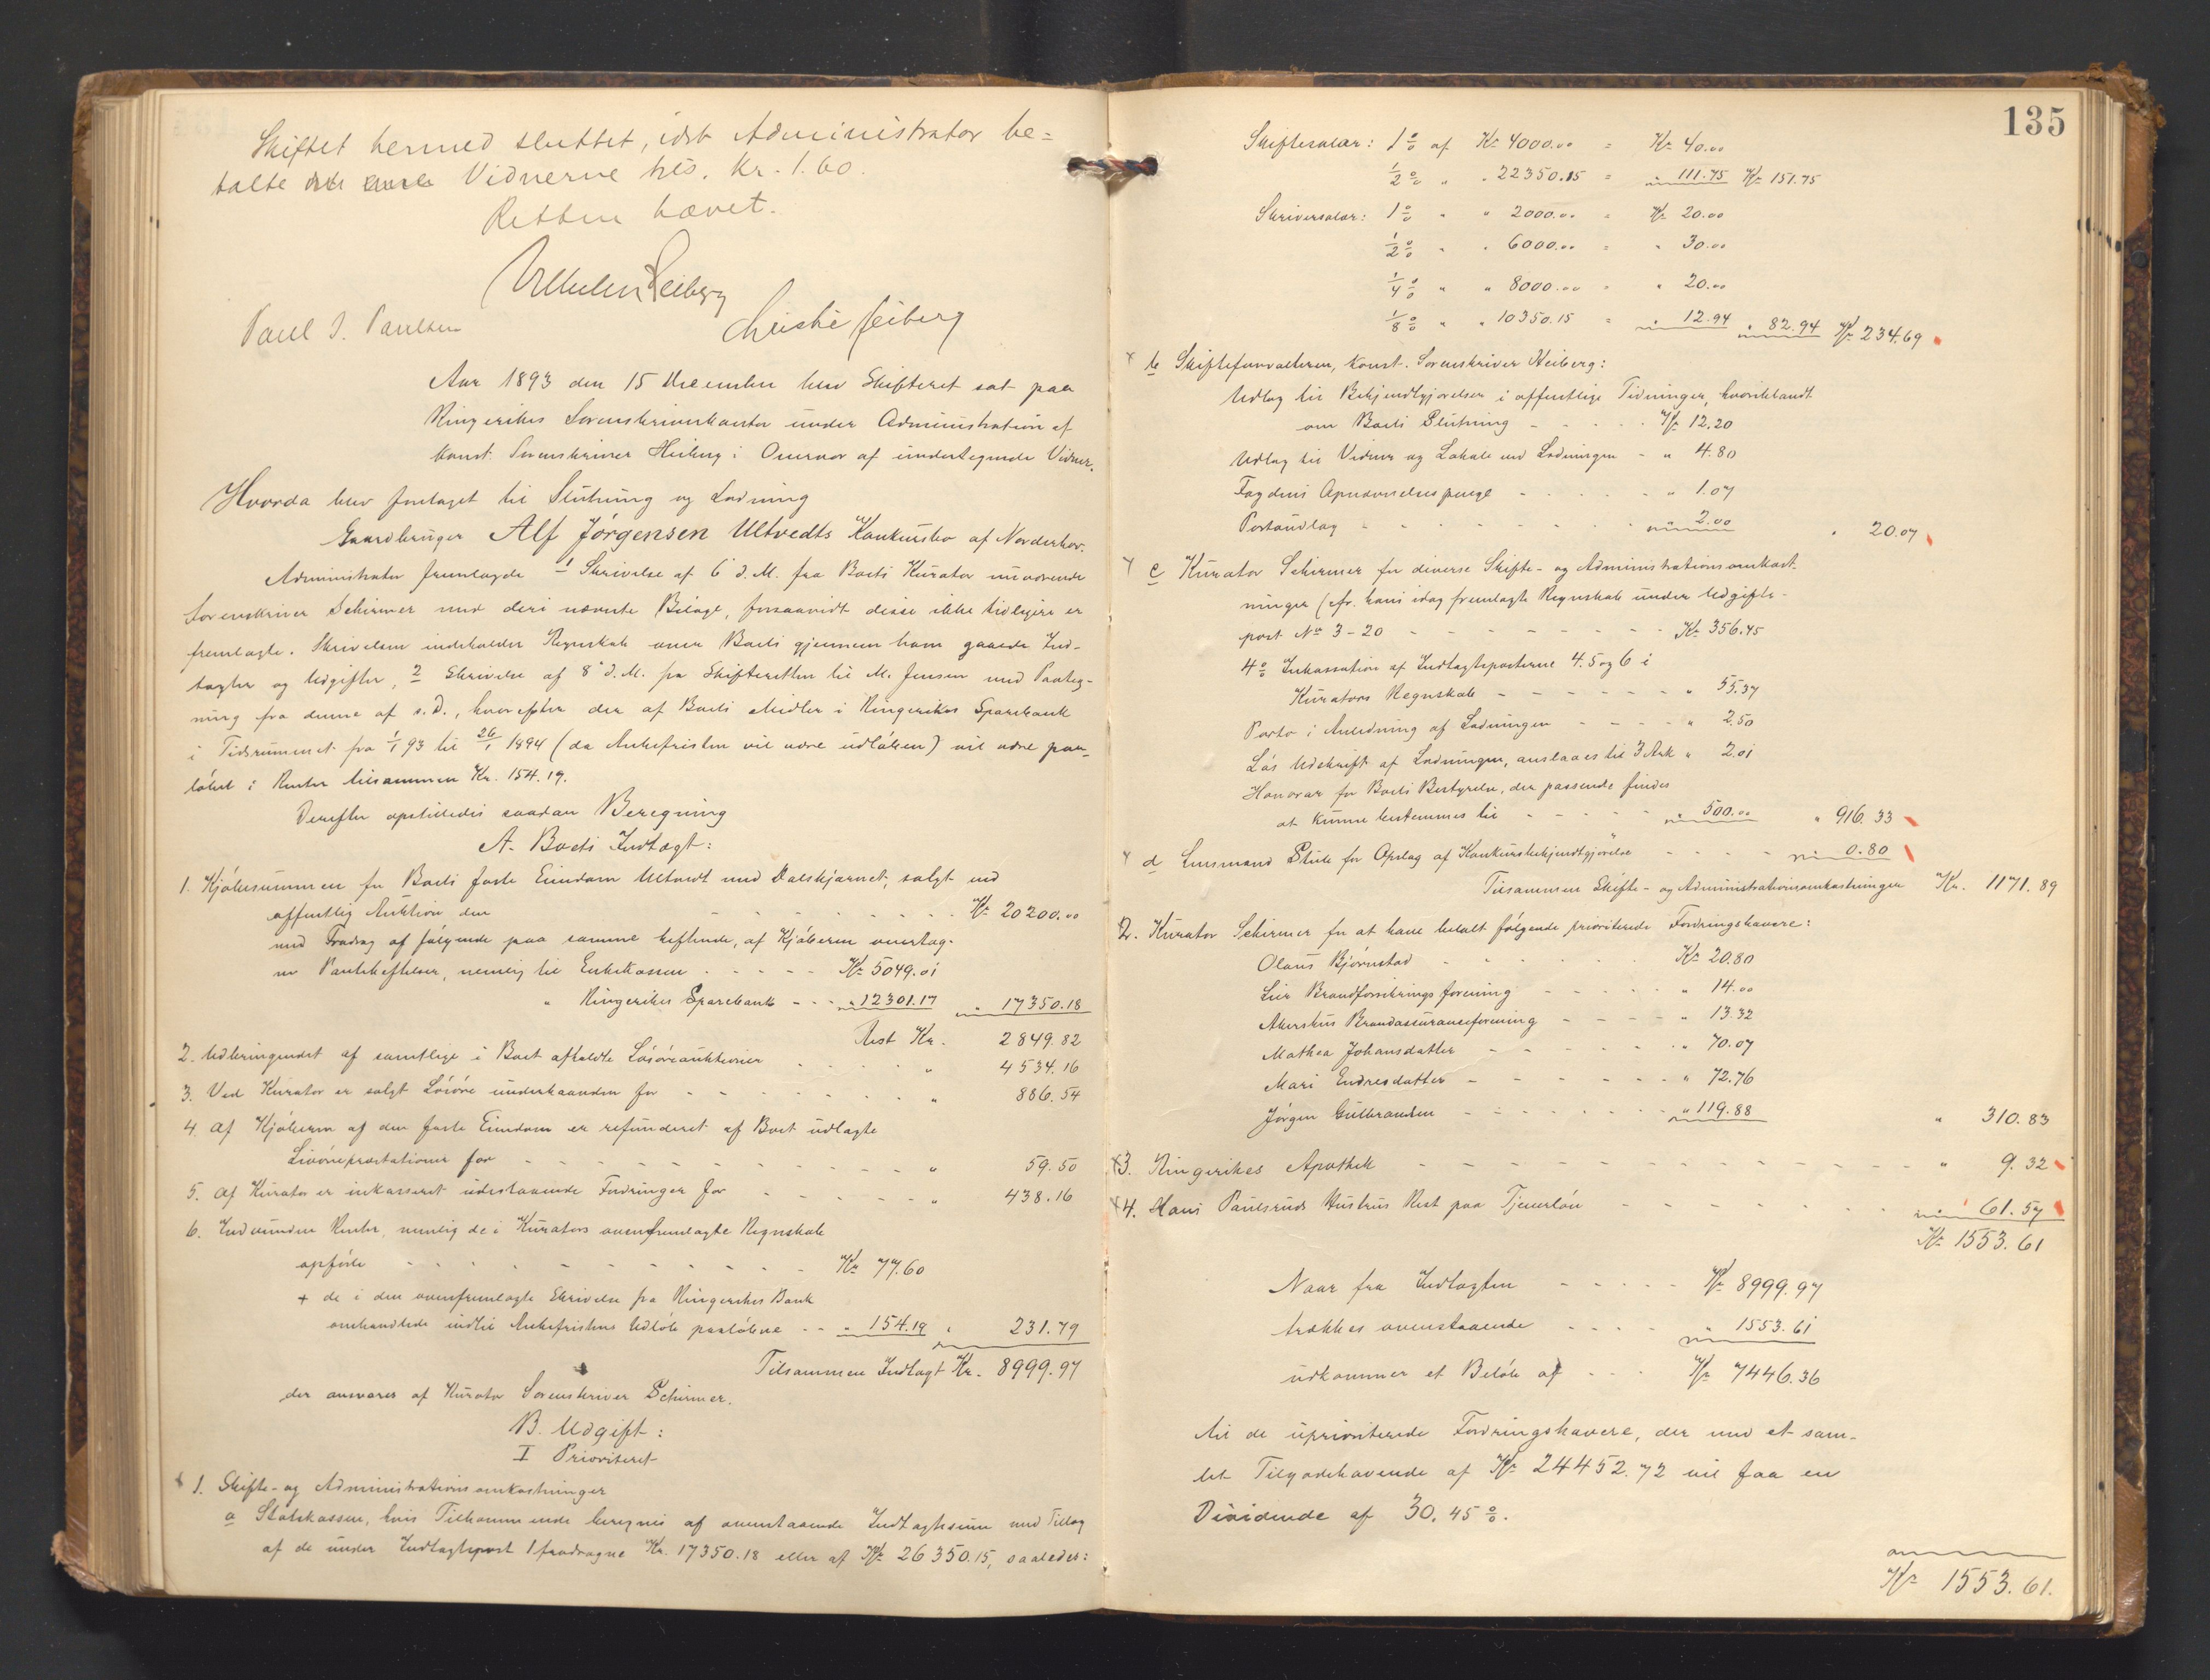 Skiftet hermed sluttet, idet Administrator be=
talte Vidnerne hes. Kr. 1.60.
Retten hævet.
Vilhelm Heiberg
Paul J. Paulsen
Christie Heiberg
Aar 1893 den 15 December blev Skifteret sat paa
Ringerikes Sorenskriverkontor under Administration af
konst. Sorenskriver Heiberg i Overvær af undertegnede Vidner.
Hvorda blev foretaget til Slutning og Lodning
Gaardbruger Alf Jørgensen Ultvedts Konkursbo af Norderhov.
Administrator fremlagde 1 Skrivelse af 6 d. M. fra Boets Kurator nuværende
Sorenskriver Schirmer med deri nævnte Bilage, forsaavidt disse ikke tidligere er
fremlagte. Skrivelsen indeholder Regnskab over Boets gjennem ham gaaede Ind-
tægter og Udgifter, 2 Skrivelse af 8 d. M. fra Skifteretten til M. Jensen med Paateg-
ning fra denne af s. D., hvorefter der af Boets Midler i Ringerikes Sparebank
i Tidsrummet fra 1/1 93 til 26/1 1894 (da Ankefristen vil være udløben) vil være paa-
løbet i Renter tilsammen Kr. 154.19.
Derefter opstilledes saadan Beregning
A. Boets Indtægt:
1. Kjøbesummen for Boets faste Eiendom Ultvedt med Dalskjærnet, solgt ved
offentlig Auktion den - - - - Kr. 20200.00
med Fradrag af følgende paa samme heftende, af Kjøberen overtag-
ne Pantheftelser, nemlig til Enkekassen - - - - Kr. 5049.01
" Ringerikes Sparebank - - - " 12301.17 " 17350.18
Rest Kr. 2849.82
2. Udbringendet af samtlige i Boet afholdte Løsøreauktioner - - - " 4534.16
3. Ved Kurator er solgt Løsøre underhaanden for - - - - " 886.54
4. Af Kjøberen af den faste Eiendom er refunderet af Boet udlagte
Livørepræstationer for - - - - " 59.50
5. Af Kurator er inkasseret udestaaende Fordringer for - - - - " 438.16
6. Indvundne Renter, nemlig de i Kurators ovenfremlagte Regnskab
opførte - - - - Kr. 77.60
+ de i den ovenfremlagte Skrivelse fra Ringerikes Bank
omhandlede indtil Ankefristens Udløb paaløbne - - " 154.19 " 231.79
Tilsammen Indtægt Kr. 8999.97
der ansvares af Kurator Sorenskriver Schirmer.
B. Udgift:
I Prioriteret
1. Skifte- og Administrationsomkostninger
a Statskassen, hvis Tilkommende beregnes af ovenstaaende Indtægtssum med Tillæg
af de under Indtægtspost 1 fradragne Kr. 17350.18 eller af Kr. 26350.15, saaledes:
135
Skiftesalær: 1 % af Kr. 4000.00 = Kr. 40.00
1/2 % " " 22350.15 = " 111.75 Kr. 151.75
Skriversalær: 1 % " " 2000.00 = Kr. 20.00
1/2 % " " 6000.00 = " 30.00
1/4 % " " 8000.00 = " 20.00
1/8 % " " 10350.15 = " 12.94 " 82.94 Kr. 234.69
b Skifteforvalteren, konst. Sorenskriver Heiberg:
Udlæg til Bekjendtgjørelser i offentlige Tidninger, hvoriblandt
om Boets Slutning - - - - Kr. 12.20
Udlæg til Vidner og Lokale ved Lodningen - " 4.80
Fogdens Opkrævelsespenge - - - - " 1.07
Portoudlæg - - - - " 2.00 " 20.07
c Kurator Schirmer for diverse Skifte- og Administrationsomkost-
ninger (cfr. hans idag fremlagte Regnskab under Udgifts-
post No 3-20 - - - - Kr. 356.45
4 % Inkassation af Indtægtsposterne 4. 5 og 6 i
Kurators Regnskab - - - - " 55.37
Porto i Anledning af Lodningen - - - - " 2.50
Løs Udskrift af Lodningen, anslaaes til 3 Ark " 2.01
Honorar for Boets Bestyrelse, der passende findes
at kunne bestemmes til - - - - " 500.00 " 916.33
d Lensmand Stub for Opslag af Konkursbekjendtgjørelse - - - - " 0.80
Tilsammen Skifte- og Administrationsomkostninger Kr. 1171.89
2. Kurator Schirmer for at have betalt følgende prioriterede Fordringshavere:
Olaus Bjørnstad - - - - Kr. 20.80
Lier Brandforsikringsforening - - - - " 14.00
Akershus Brandassuranceforening - - - - " 13.32
Mathea Johansdatter - - - - " 70.07
Mari Endresdatter - - - - " 72.76
Jørgen Gulbrandsen - - - - " 119.88 " 310.83
3. Ringerikes Apothek - - - - " 9.32
4. Hans Paulsruds Hustrus Rest paa Tjenerløn - - - - " 61.57
Kr. 1553.61
Naar fra Indtægten - - - - Kr. 8999.97
trækkes ovenstaaende - - - - " 1553.61
udkommer et Beløb af - - - Kr. 7446.36
til de uprioriterede Fordringshavere, der med et sam-
let Tilgodehavende af Kr. 24452.72 vil faa en
Dividende af 30.45 %.
Kr. 1553.61.